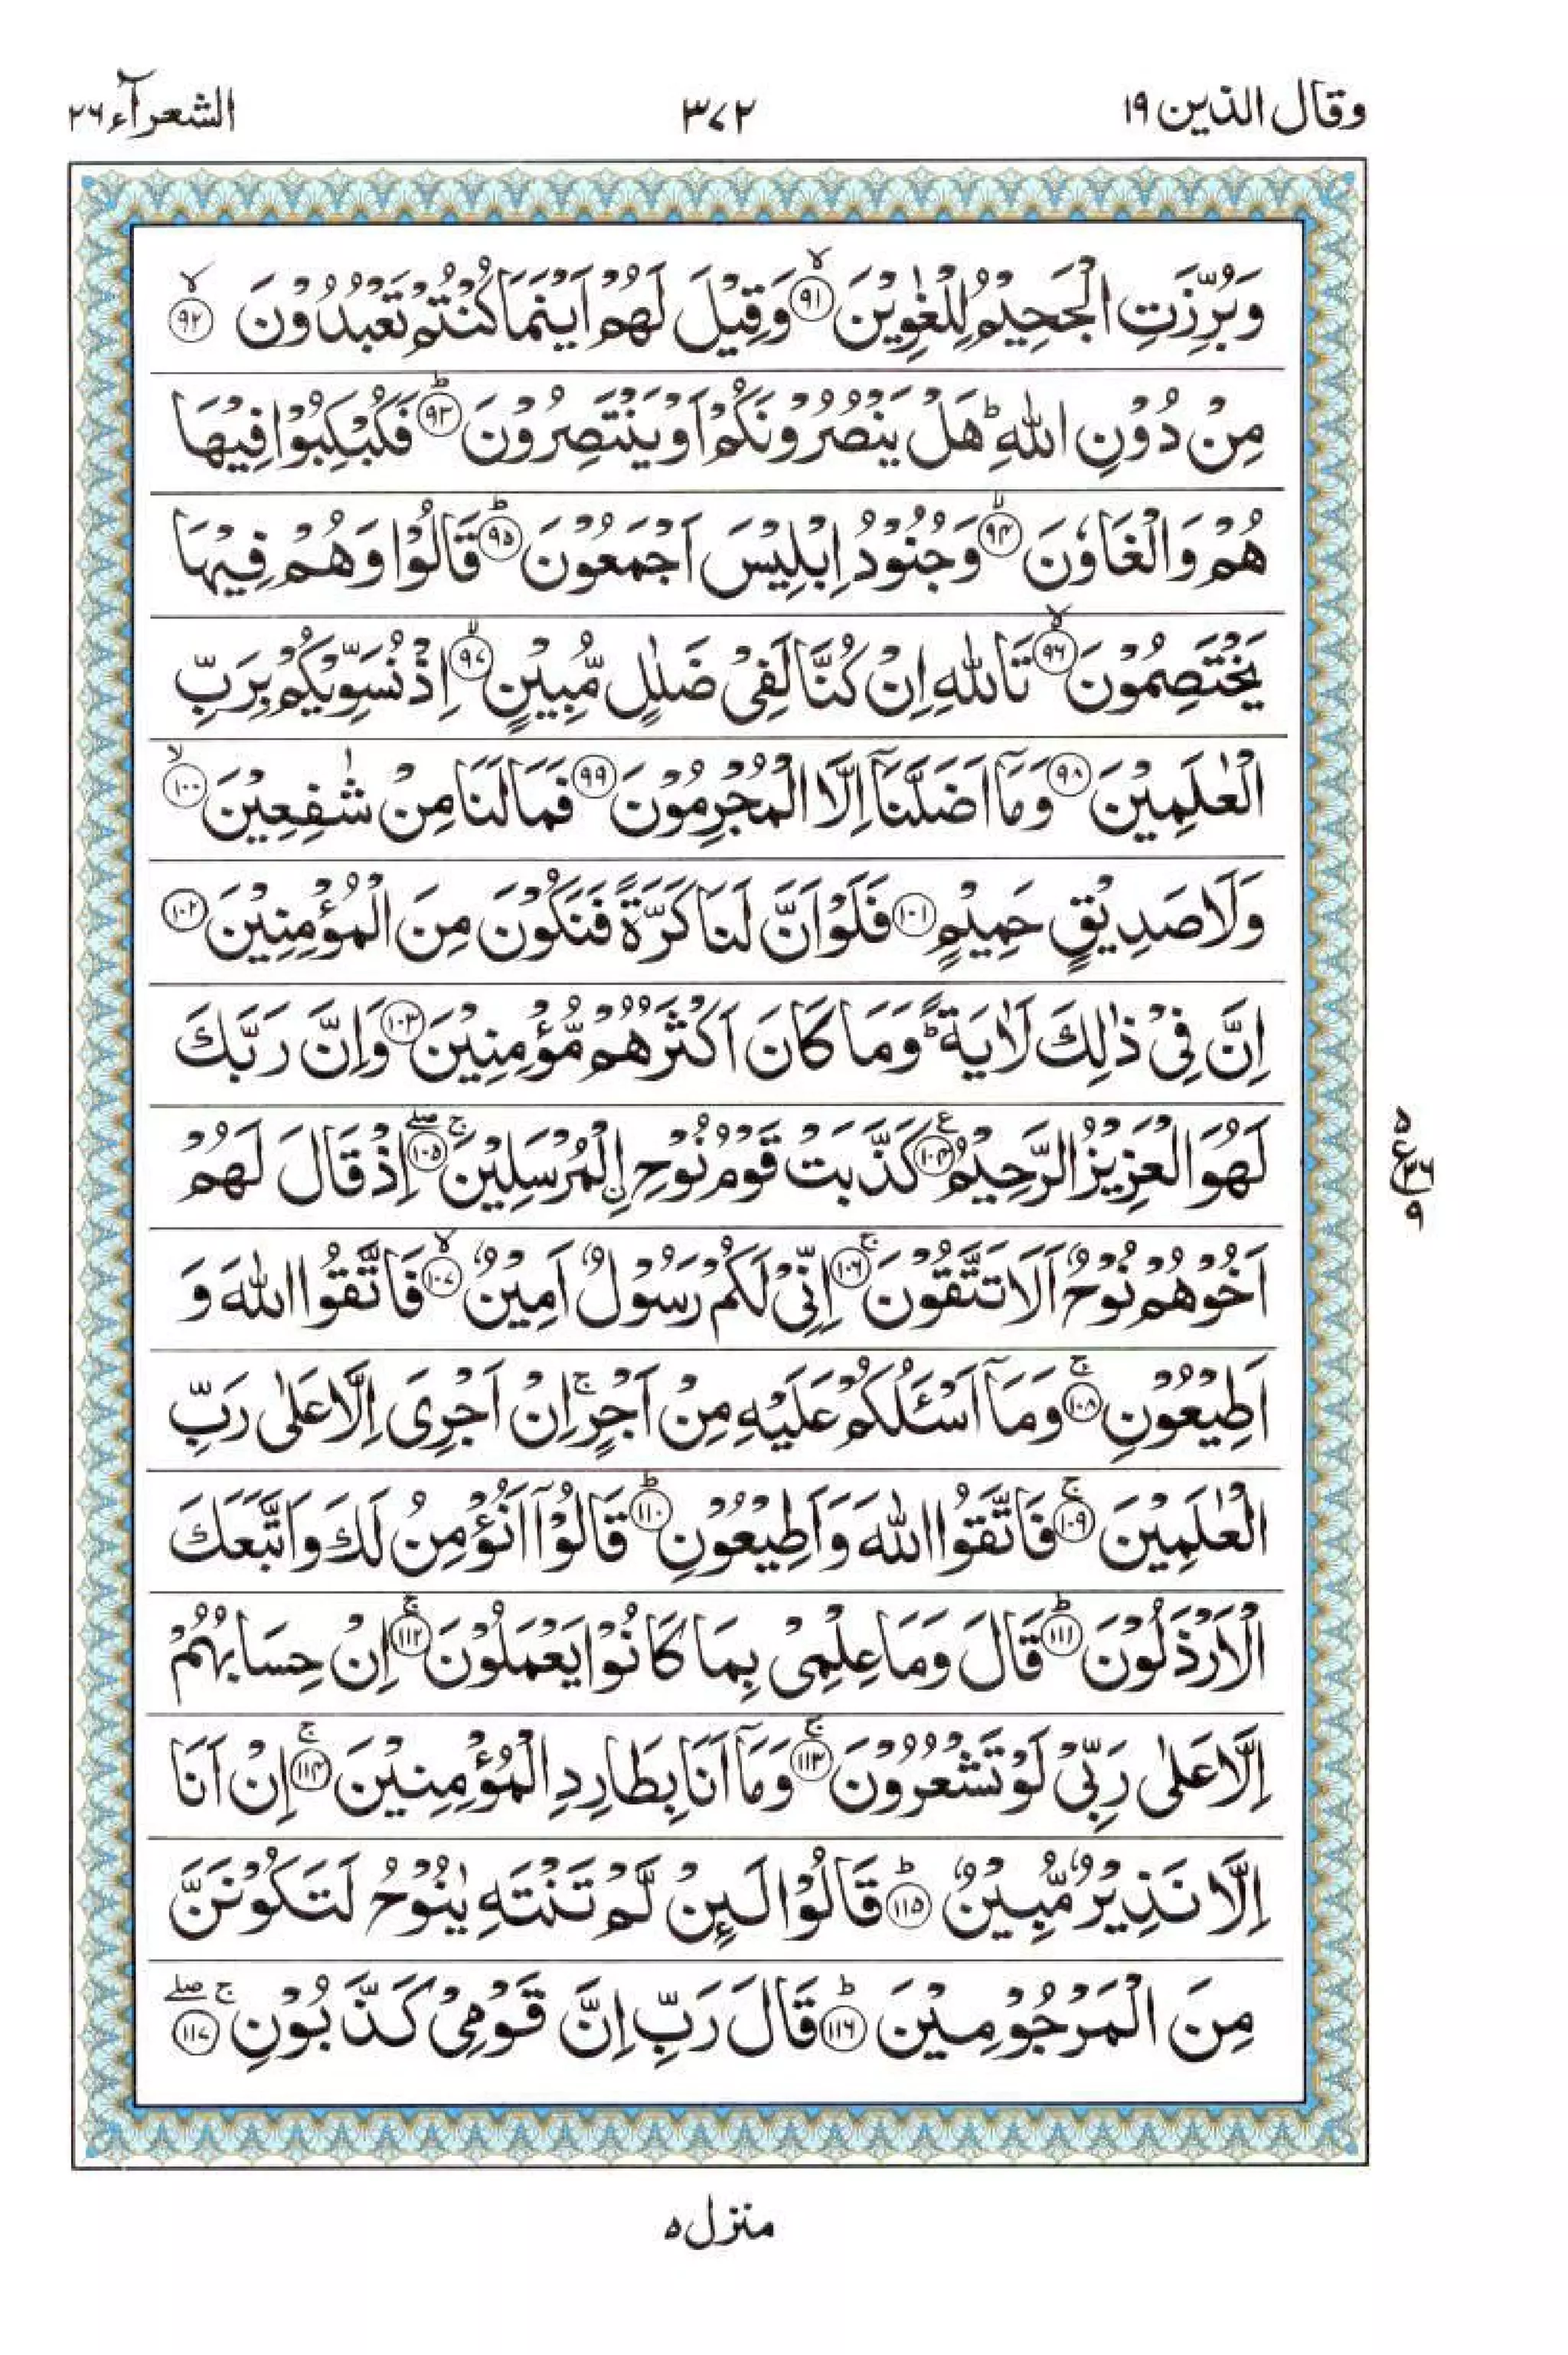 وقال الذين ١٩
٣٧٢
الشعرآء ٢٦
وَبُرِّزَتِ الْجَحِيْمُ لِلْغٰوِيْنَ ۙ‏﴿۹۱﴾ وَقِيْلَ لَهُمْ اَيْنَمَا كُنْتُمْ تَعْبُدُوْنَ ۙ‏﴿۹۲﴾
مِنْ دُوْنِ اللّٰهِ ؕ هَلْ يَنْصُرُوْنَكُمْ اَوْ يَنْتَصِرُوْنَ ؕ‏﴿۹۳﴾ فَكُبْكِبُوْا فِيْهَا
هُمْ وَالْغَاوٗنَ ۙ‏﴿۹۴﴾ وَجُنُوْدُ اِبْلِيْسَ اَجْمَعُوْنَ ؕ‏﴿۹۵﴾ قَالُوْا وَهُمْ فِيْهَا
يَخْتَصِمُوْنَ ۙ‏﴿۹۶﴾ تَاللّٰهِ اِنْ كُنَّا لَفِىْ ضَلٰلٍ مُّبِيْنٍ ۙ‏﴿۹۷﴾ اِذْ نُسَوِّيْكُمْ بِرَبِّ
الْعٰلَمِيْنَ ‏﴿۹۸﴾ وَمَاۤ اَضَلَّنَاۤ اِلَّا الْمُجْرِمُوْنَ ‏﴿۹۹﴾ فَمَا لَنَا مِنْ شٰفِعِيْنَ ۙ‏﴿۱۰۰﴾
وَلَا صَدِيْقٍ حَمِيْمٍ ‏﴿۱۰۱﴾ فَلَوْ اَنَّ لَنَا كَرَّةً فَنَكُوْنَ مِنَ الْمُؤْمِنِيْنَ ‏﴿۱۰۲﴾
اِنَّ فِىْ ذٰلِكَ لَاٰيَةً ؕ وَمَا كَانَ اَكْثَرُهُمْ مُّؤْمِنِيْنَ ‏﴿۱۰۳﴾ وَاِنَّ رَبَّكَ
لَهُوَ الْعَزِيْزُ الرَّحِيْمُ ؑ‏﴿۱۰۴﴾ كَذَّبَتْ قَوْمُ نُوْحِ ۨالْمُرْسَلِيْنَ ۚ ۖ‏﴿۱۰۵﴾ اِذْ قَالَ لَهُمْ
اَخُوْهُمْ نُوْحٌ اَلَا تَتَّقُوْنَ ۚ‏﴿۱۰۶﴾ اِنِّىْ لَكُمْ رَسُوْلٌ اَمِيْنٌ ۙ‏﴿۱۰۷﴾ فَاتَّقُوا اللّٰهَ وَ
اَطِيْعُوْنِ ۚ‏﴿۱۰۸﴾ وَمَاۤ اَسْـَٔلُكُمْ عَلَيْهِ مِنْ اَجْرٍ ۚ اِنْ اَجْرِىَ اِلَّا عَلٰى رَبِّ
الْعٰلَمِيْنَ ۚ‏﴿۱۰۹﴾ فَاتَّقُوا اللّٰهَ وَاَطِيْعُوْنِ ؕ‏﴿۱۱۰﴾ قَالُوْۤا اَنُؤْمِنُ لَكَ وَاتَّبَعَكَ
الْاَرْذَلُوْنَ ؕ‏﴿۱۱۱﴾ قَالَ وَمَا عِلْمِىْ بِمَا كَانُوْا يَعْمَلُوْنَ ۚ‏﴿۱۱۲﴾ اِنْ حِسَابُهُمْ
اِلَّا عَلٰى رَبِّىْ لَوْ تَشْعُرُوْنَ ۚ‏﴿۱۱۳﴾ وَمَاۤ اَنَا بِطَارِدِ الْمُؤْمِنِيْنَ ۚ‏﴿۱۱۴﴾ اِنْ اَنَا
اِلَّا نَذِيْرٌ مُّبِيْنٌ ؕ‏﴿۱۱۵﴾ قَالُوْا لَـئِنْ لَّمْ تَنْتَهِ يٰنُوْحُ لَتَكُوْنَنَّ
مِنَ الْمَرْجُوْمِيْنَ ؕ‏﴿۱۱۶﴾ قَالَ رَبِّ اِنَّ قَوْمِىْ كَذَّبُوْنِ ۚ ۖ‏﴿۱۱۷﴾
٥
ع ٣٦
٩
منزل ٥